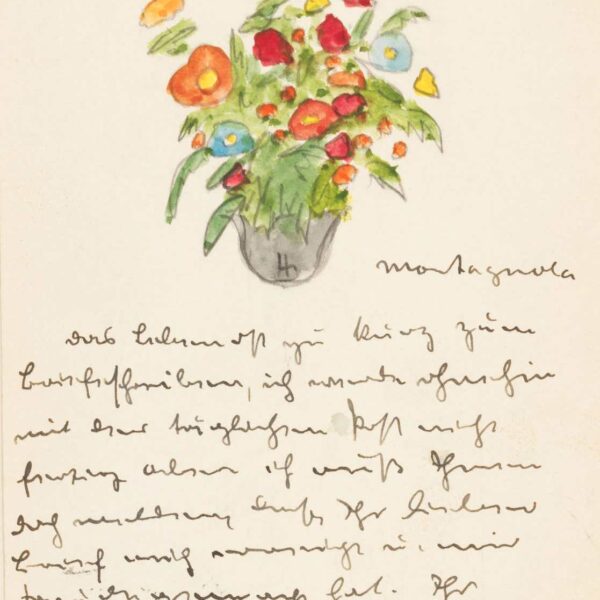 H
Montagnola
Das Leben ist zu kurz zum
Briefschreiben, ich werde ohnehin
mit der täglichen Post nicht
fertig aber ich muß Ihnen
doch melden, daß Ihr lieber
Brief mich erreicht u. mir
hat. Ihr